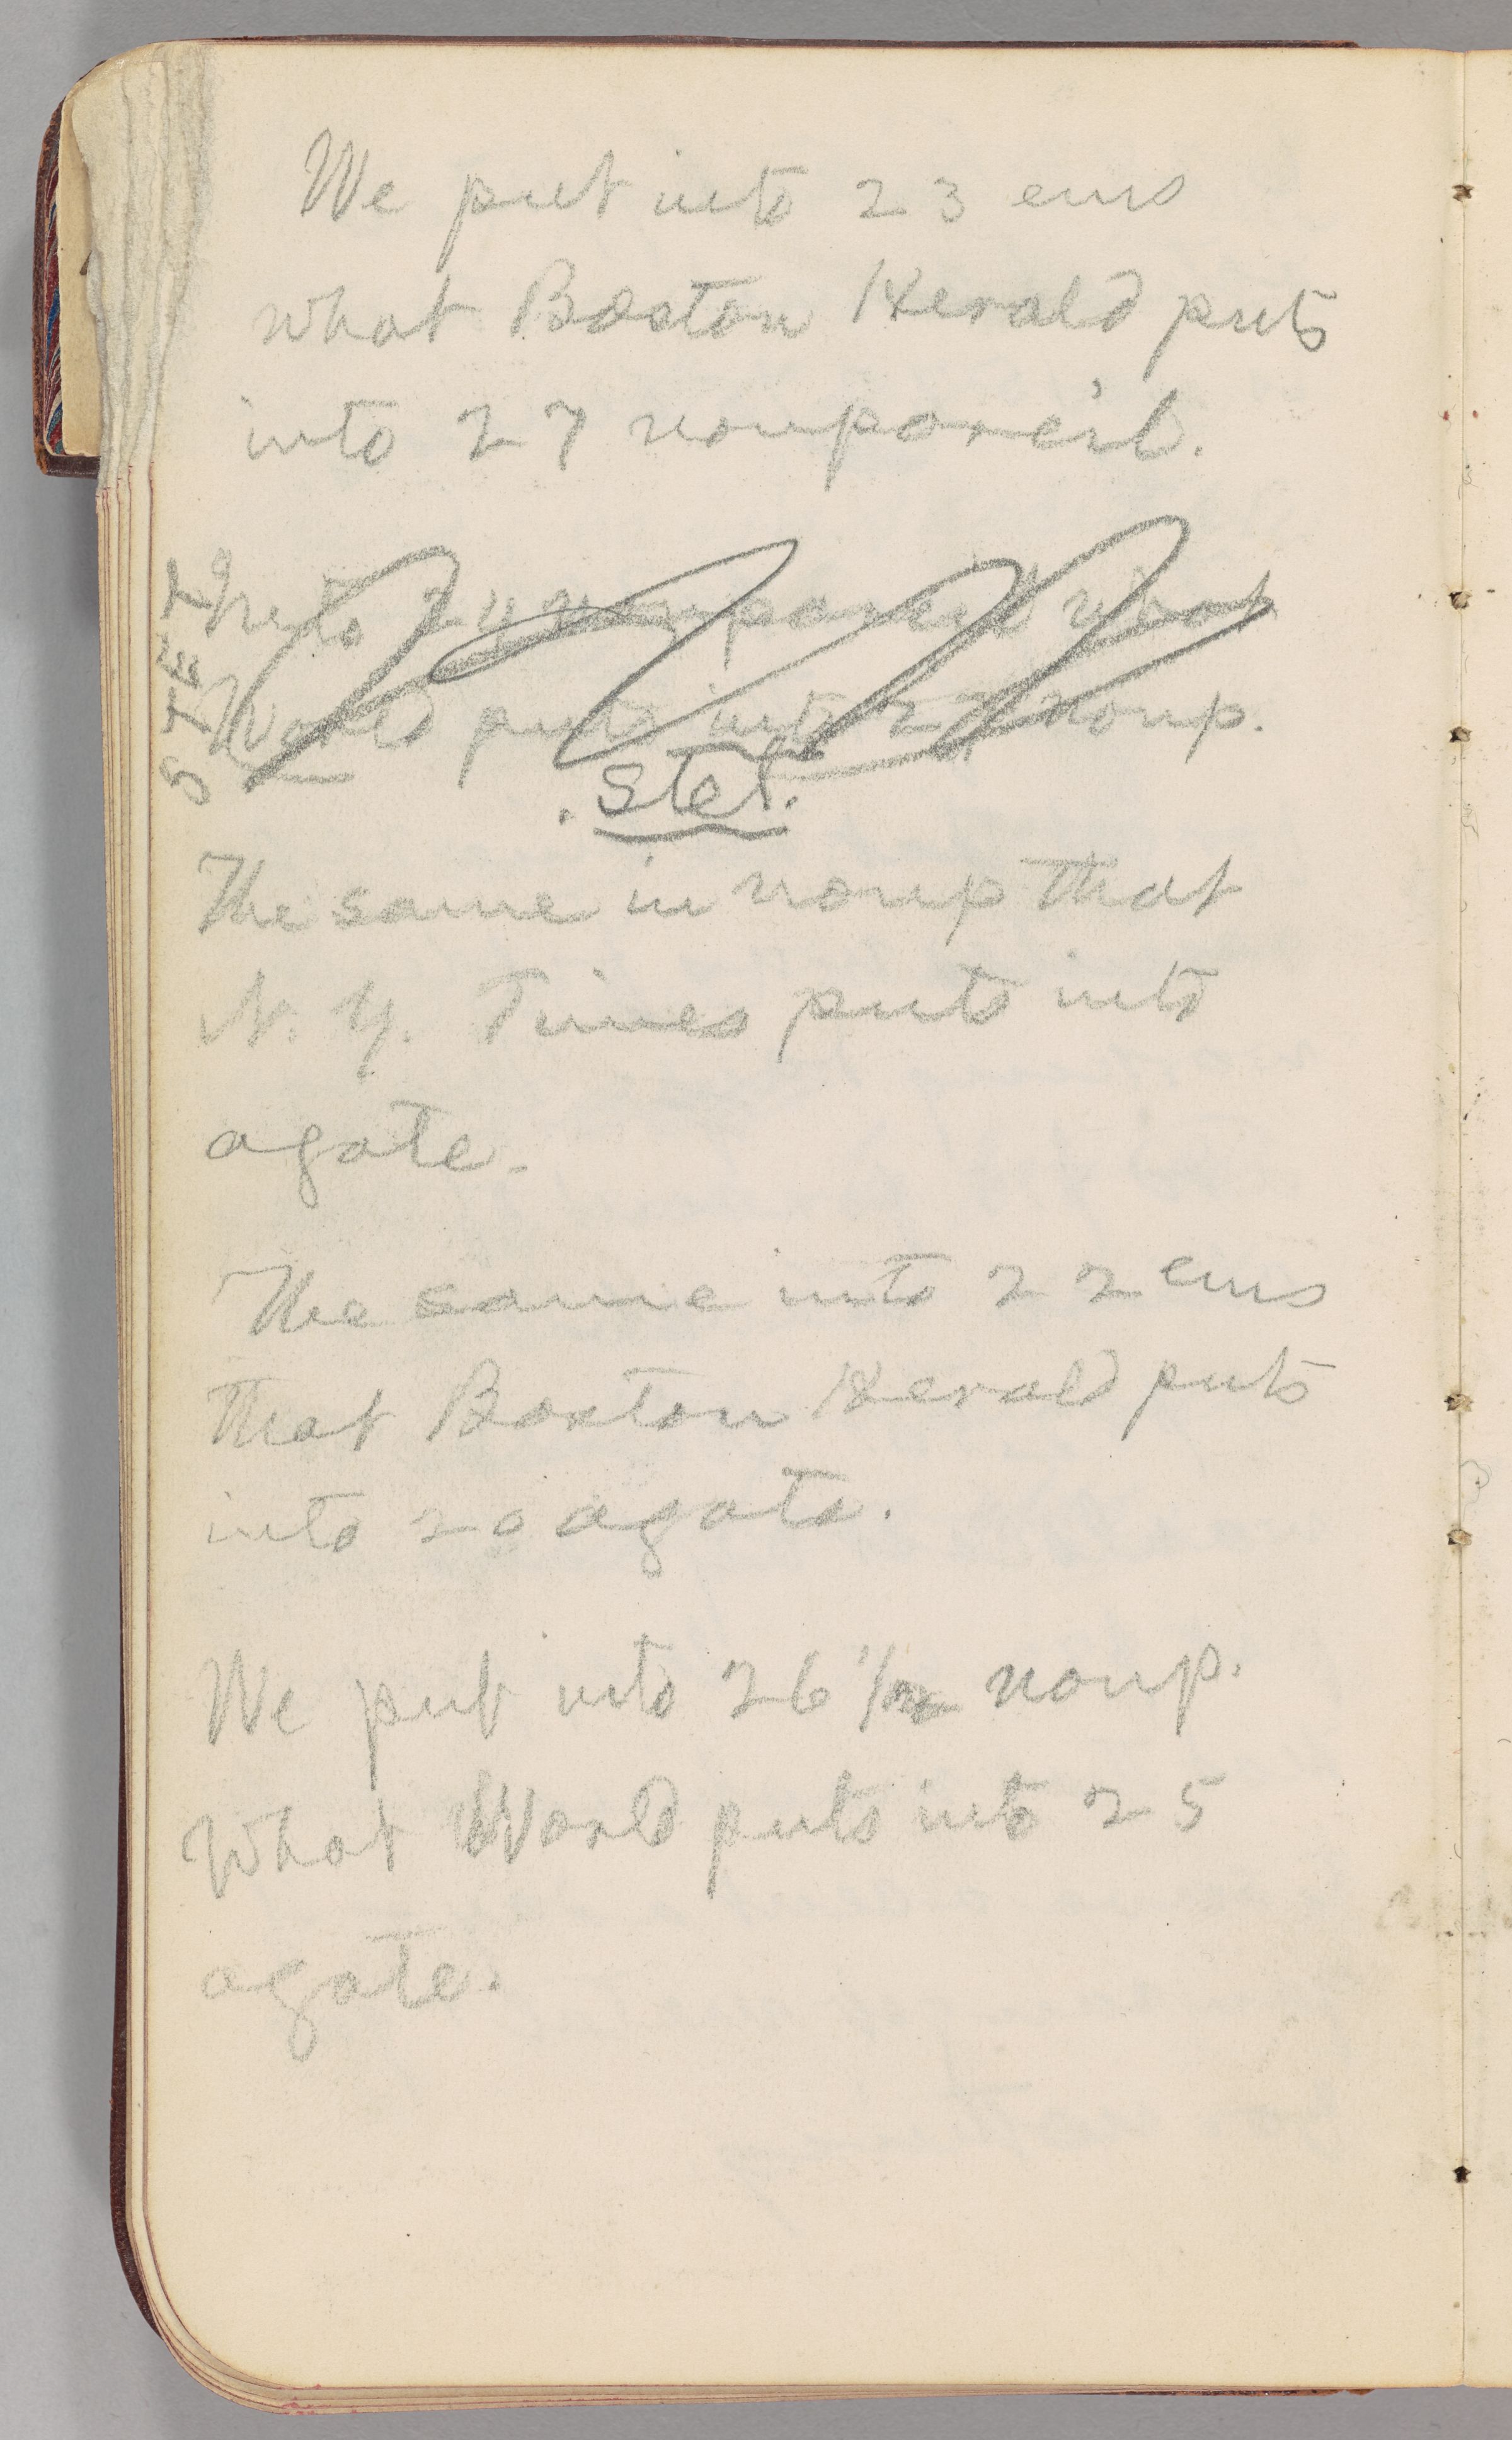 We put into 23 ems
what Boston Herald puts
into 27 nonpareil.
STET
Into 24 nonpareil what
World puts into 27 nonp.
. Stet.
The same in nonp that
N. Y. Times puts into
agate.
The same into 22 ems
that Boston Herald puts
into 20 agate.
We put into 26 1/2 nonp.
What World puts into 25
agate.